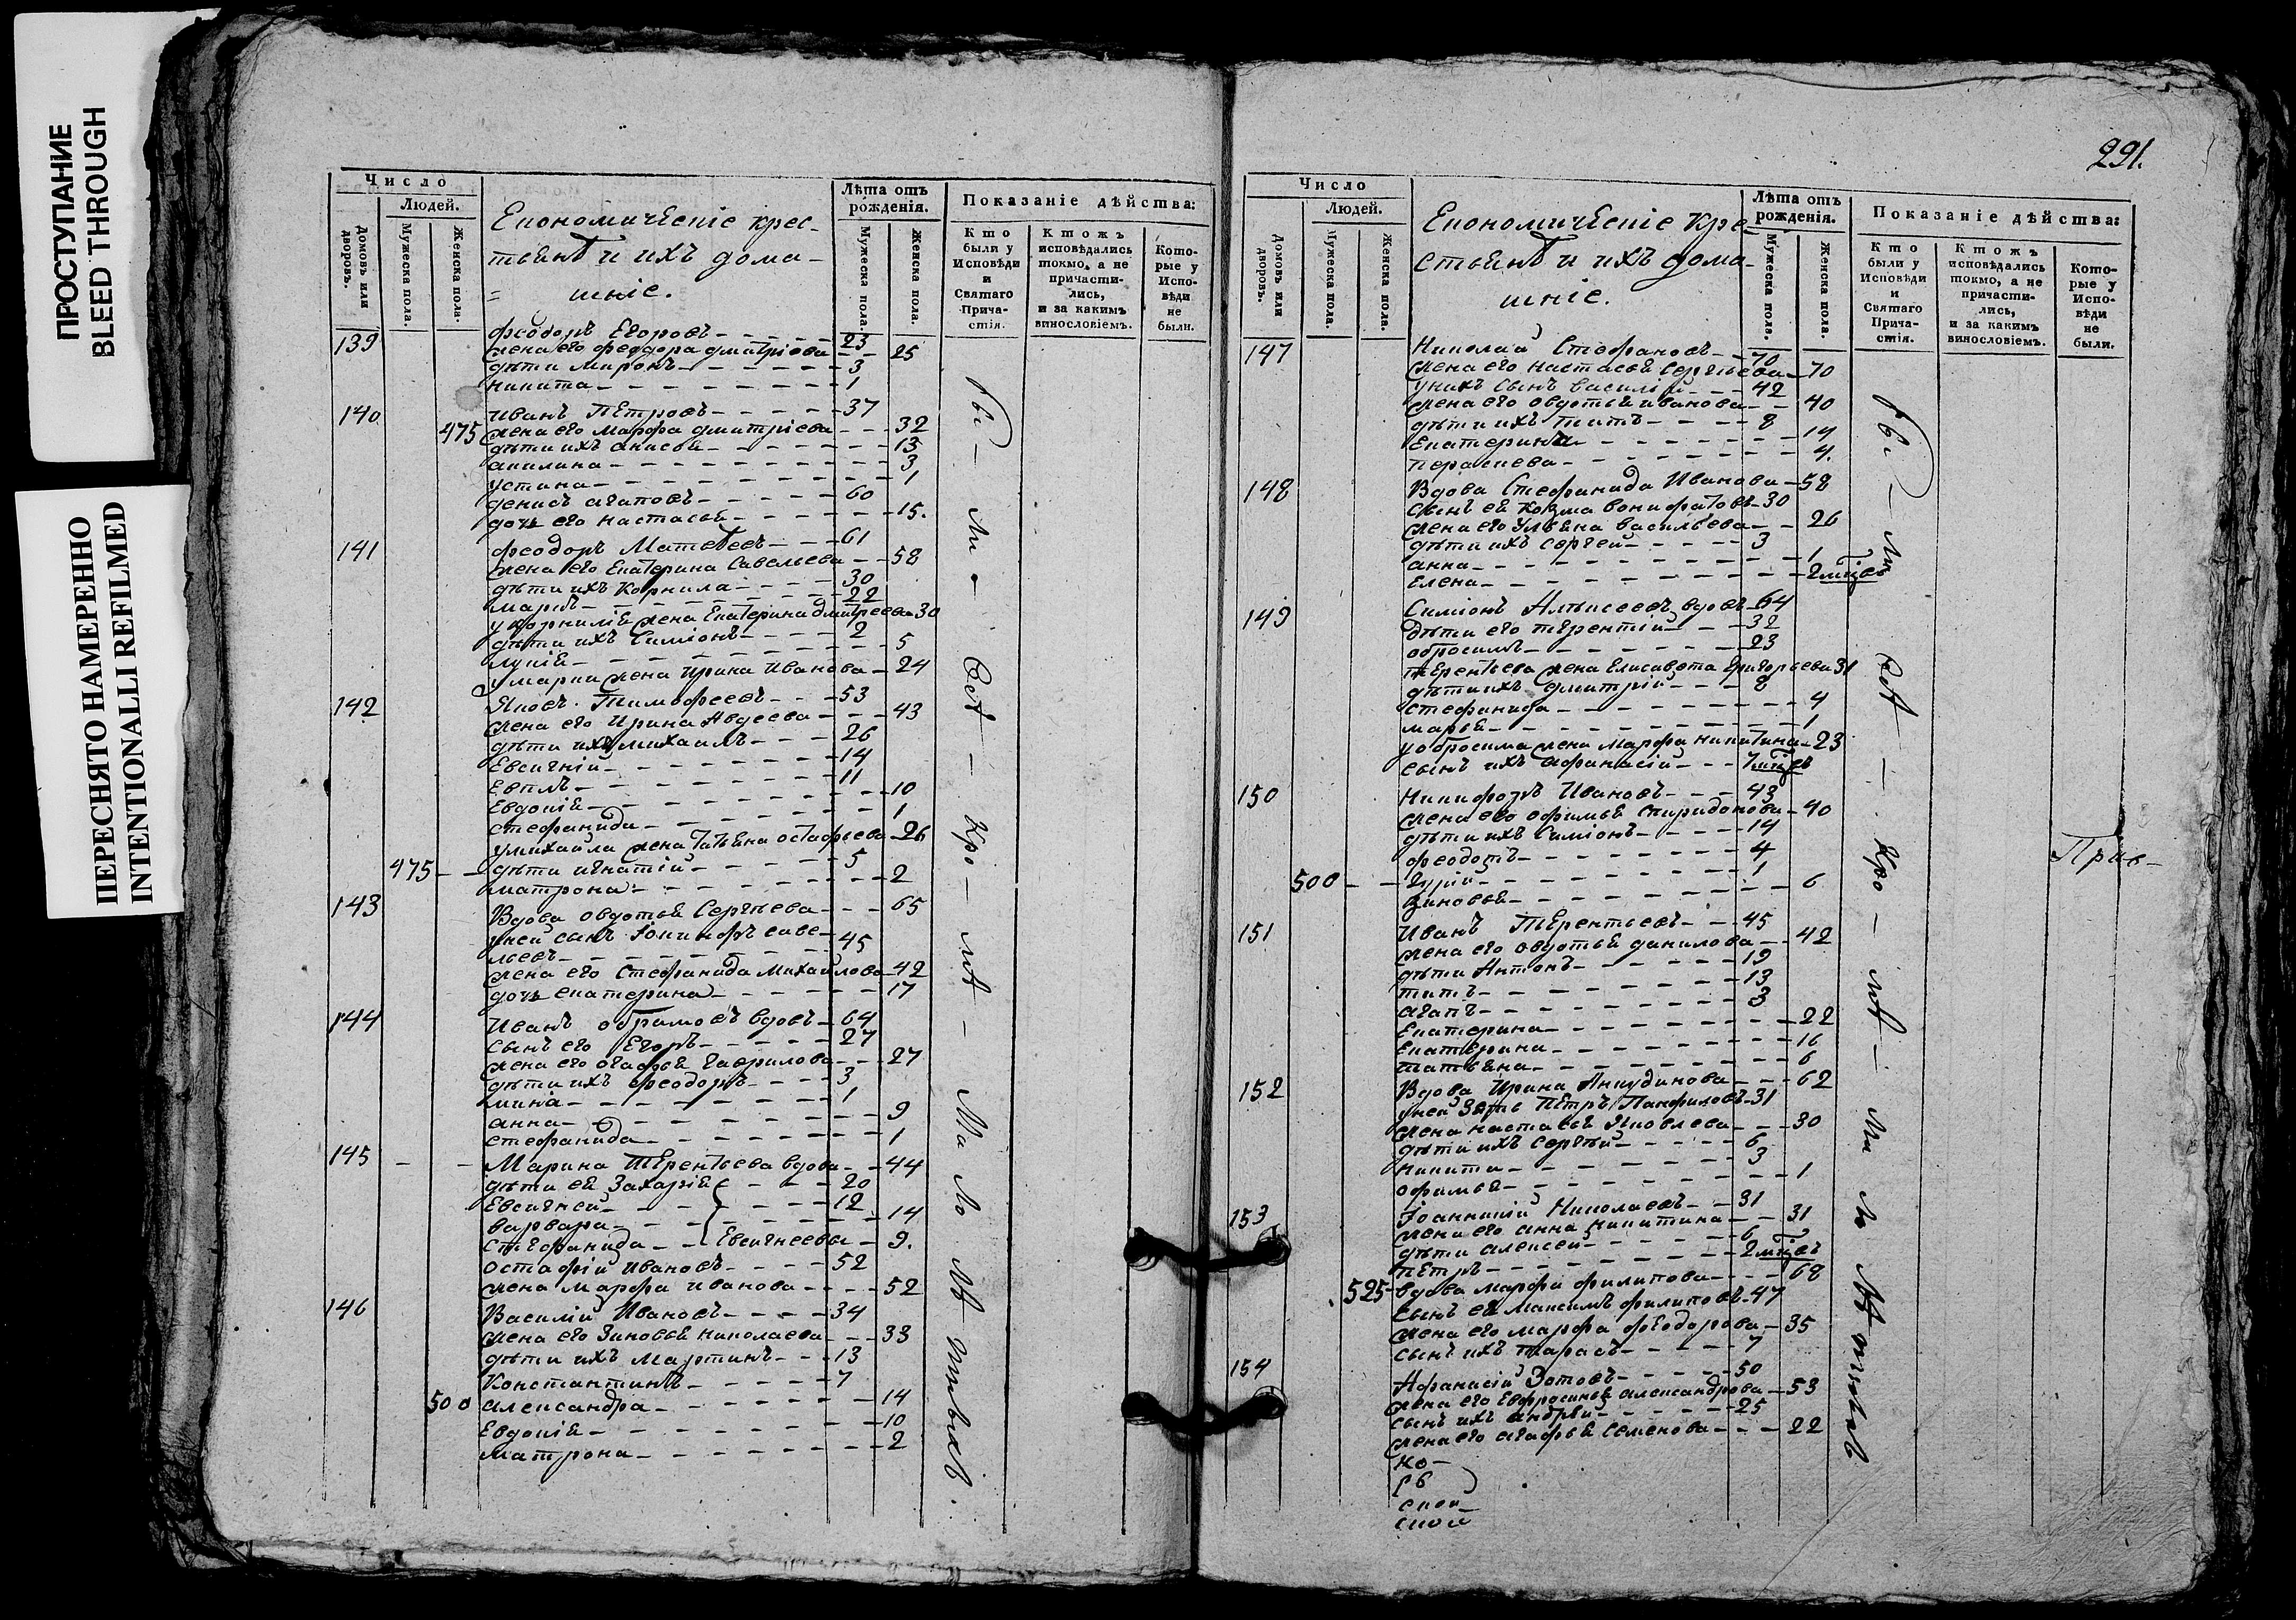 ПРОСТУПАНИЕ
BLEED THROUGH
ПЕРЕСНЯТО НАМЕРЕННО
INTENTIONALLI REFILMED
Число
Людей.
Домовъ или дворовъ.
Мужеска пола.
Женска пола.
Економическіе крес-
тьянѣ и ихъ дома-
= шніе.
Лѣта отъ рожденія.
Мужеска пола.
Женска пола.
Показаніе дѣйства:
Кто были у Исповѣди и Святаго Прича-стія.
Ктожъ исповѣдались токмо, а не причасти-лись, и за какимъ винословіемъ.
Кото-рые у Испо-вѣди не были.
139 Феодоръ Егоровъ 23
жена его Феодора Дмитріева 25
дѣти Миронъ 3
Никита 1
140 Иванъ Петровъ 37
475 жена его Марфа Дмитріева 32
дѣти ихъ Анисья 13
Акилина 3
Устина 1
Денисъ Агаповъ 60
дочь его Настасья 15.
141 Феодоръ Матвеевъ 61
жена его Екатерина Савельева 58
дѣти ихъ Корнила 30
Маркъ 22
у Корнилія жена Екатерина Дмитреева 30
дѣти ихъ Симіонъ 2
Лукія 5
у Марка жена Ирина Иванова 24
142 Яковъ Тимофеевъ 53
жена его Ирина Авдеева 43
дѣти ихъ Михаилъ 26
Евсигній 14
Евплъ 11
Евдокія 10
Стефанида 1
у Михайла жена Татьяна Остафьева 26
475 дѣти Игнатій 5
Матрона 2
143 Вдова Овдотья Сергѣева 65
у ней сынъ Іоникифръ Саве-
льевъ 45
жена его Стефанида Михайлова 42
дочь Екатерина 17
144 Иванъ Обрамовъ вдовъ 64
сынъ его Егоръ 27
жена его Огафья Гаврилова 27
дѣти ихъ Феодоръ 3
Мина 1
Анна 9
Стефанида 1
145 Марина Терентьева вдова 44
дѣти ея Захарія 20
Евсигней 12
Варвара 14
Стефанида Евсигнеевы 9.
Остафій Ивановъ 52
жена Марфа Иванова 52
146 Василій Ивановъ 34
жена его Зиновья Николаева 33
дѣти ихъ Мартинъ 13
Константинъ 7
500 Александра 14
Евдокія 10
Матрона 2
291.
Число
Людей.
Домовъ или дворовъ.
Мужеска пола.
Женска пола.
Економическіе кре-
стьянѣ и ихъ дома-
шніе.
Лѣта отъ рожденія.
Мужеска пола.
Женска пола.
Показаніе дѣйства:
Кто были у Исповѣди и Святаго Прича-стія.
Ктожъ исповѣдались токмо, а не причасти-лись, и за какимъ винословіемъ.
Кото-рые у Испо-вѣди не были.
147 Николай Стефановъ 70
жена его Настасья Сергѣева 70
у нихъ сынъ Василій 42
жена его Овдотья Иванова 40
дѣти ихъ Титъ 8
Екатерина 14
Параскева 4.
148 Вдова Стефанида Иванова 58
сынъ ея Козма Вонифатовъ 30
жена его Ульяна Васильева 26
дѣти ихъ Сергей 3
Анна 1
Елена 2 мцсъ
149 Симіонъ Алѣксеевъ вдовъ 64
дѣти его Терентій 32
Обросимъ 23
Терентьева жена Елисавета Григорьева 31
дѣти ихъ Дмитрій 8
Стефанида 4
Марья 1
у Обросима жена Марфа Никитина 23
сынъ ихъ Афанасій 7 мцсъ
150 Никифоръ Ивановъ 43
жена его Офимья Спиридонова 40
дѣти ихъ Симіонъ 14
Феодотъ 4
500 Гурій 1
Зиновья 6
151 Иванъ Терентьевъ 45
жена его Овдотья Данилова 42
дѣти Антонъ 19
Титъ 13
Агапъ 3
Екатерина 22
Екатерина 16
Татьяна 6
152 Вдова Ирина Анкудинова 62
у ней зять Петръ Панфиловъ 31
жена Настасья Яковлева 30
дѣти ихъ Сергѣй 6
Никита 3
Офимья 1
153 Іоанникій Николаевъ 31
жена его Анна Никитина 31
дѣти Алексей 6
Петръ 2 мцсъ
525 Вдова Марфа Филипова 68
сынъ ея Максимъ Филиповъ 47
жена его Марфа Феодорова 35
сынъ ихъ Тарасъ 7
154 Афанасій Зотовъ 50
жена его Евфросинья Александрова 53
сынъ ихъ Андрей 25
жена его Агафья Семенова 22